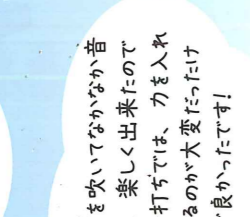 を吹いてなかなか音
楽しく出来たので
打ちでは、力を入れ
るのが大変だったけ
良かったです!